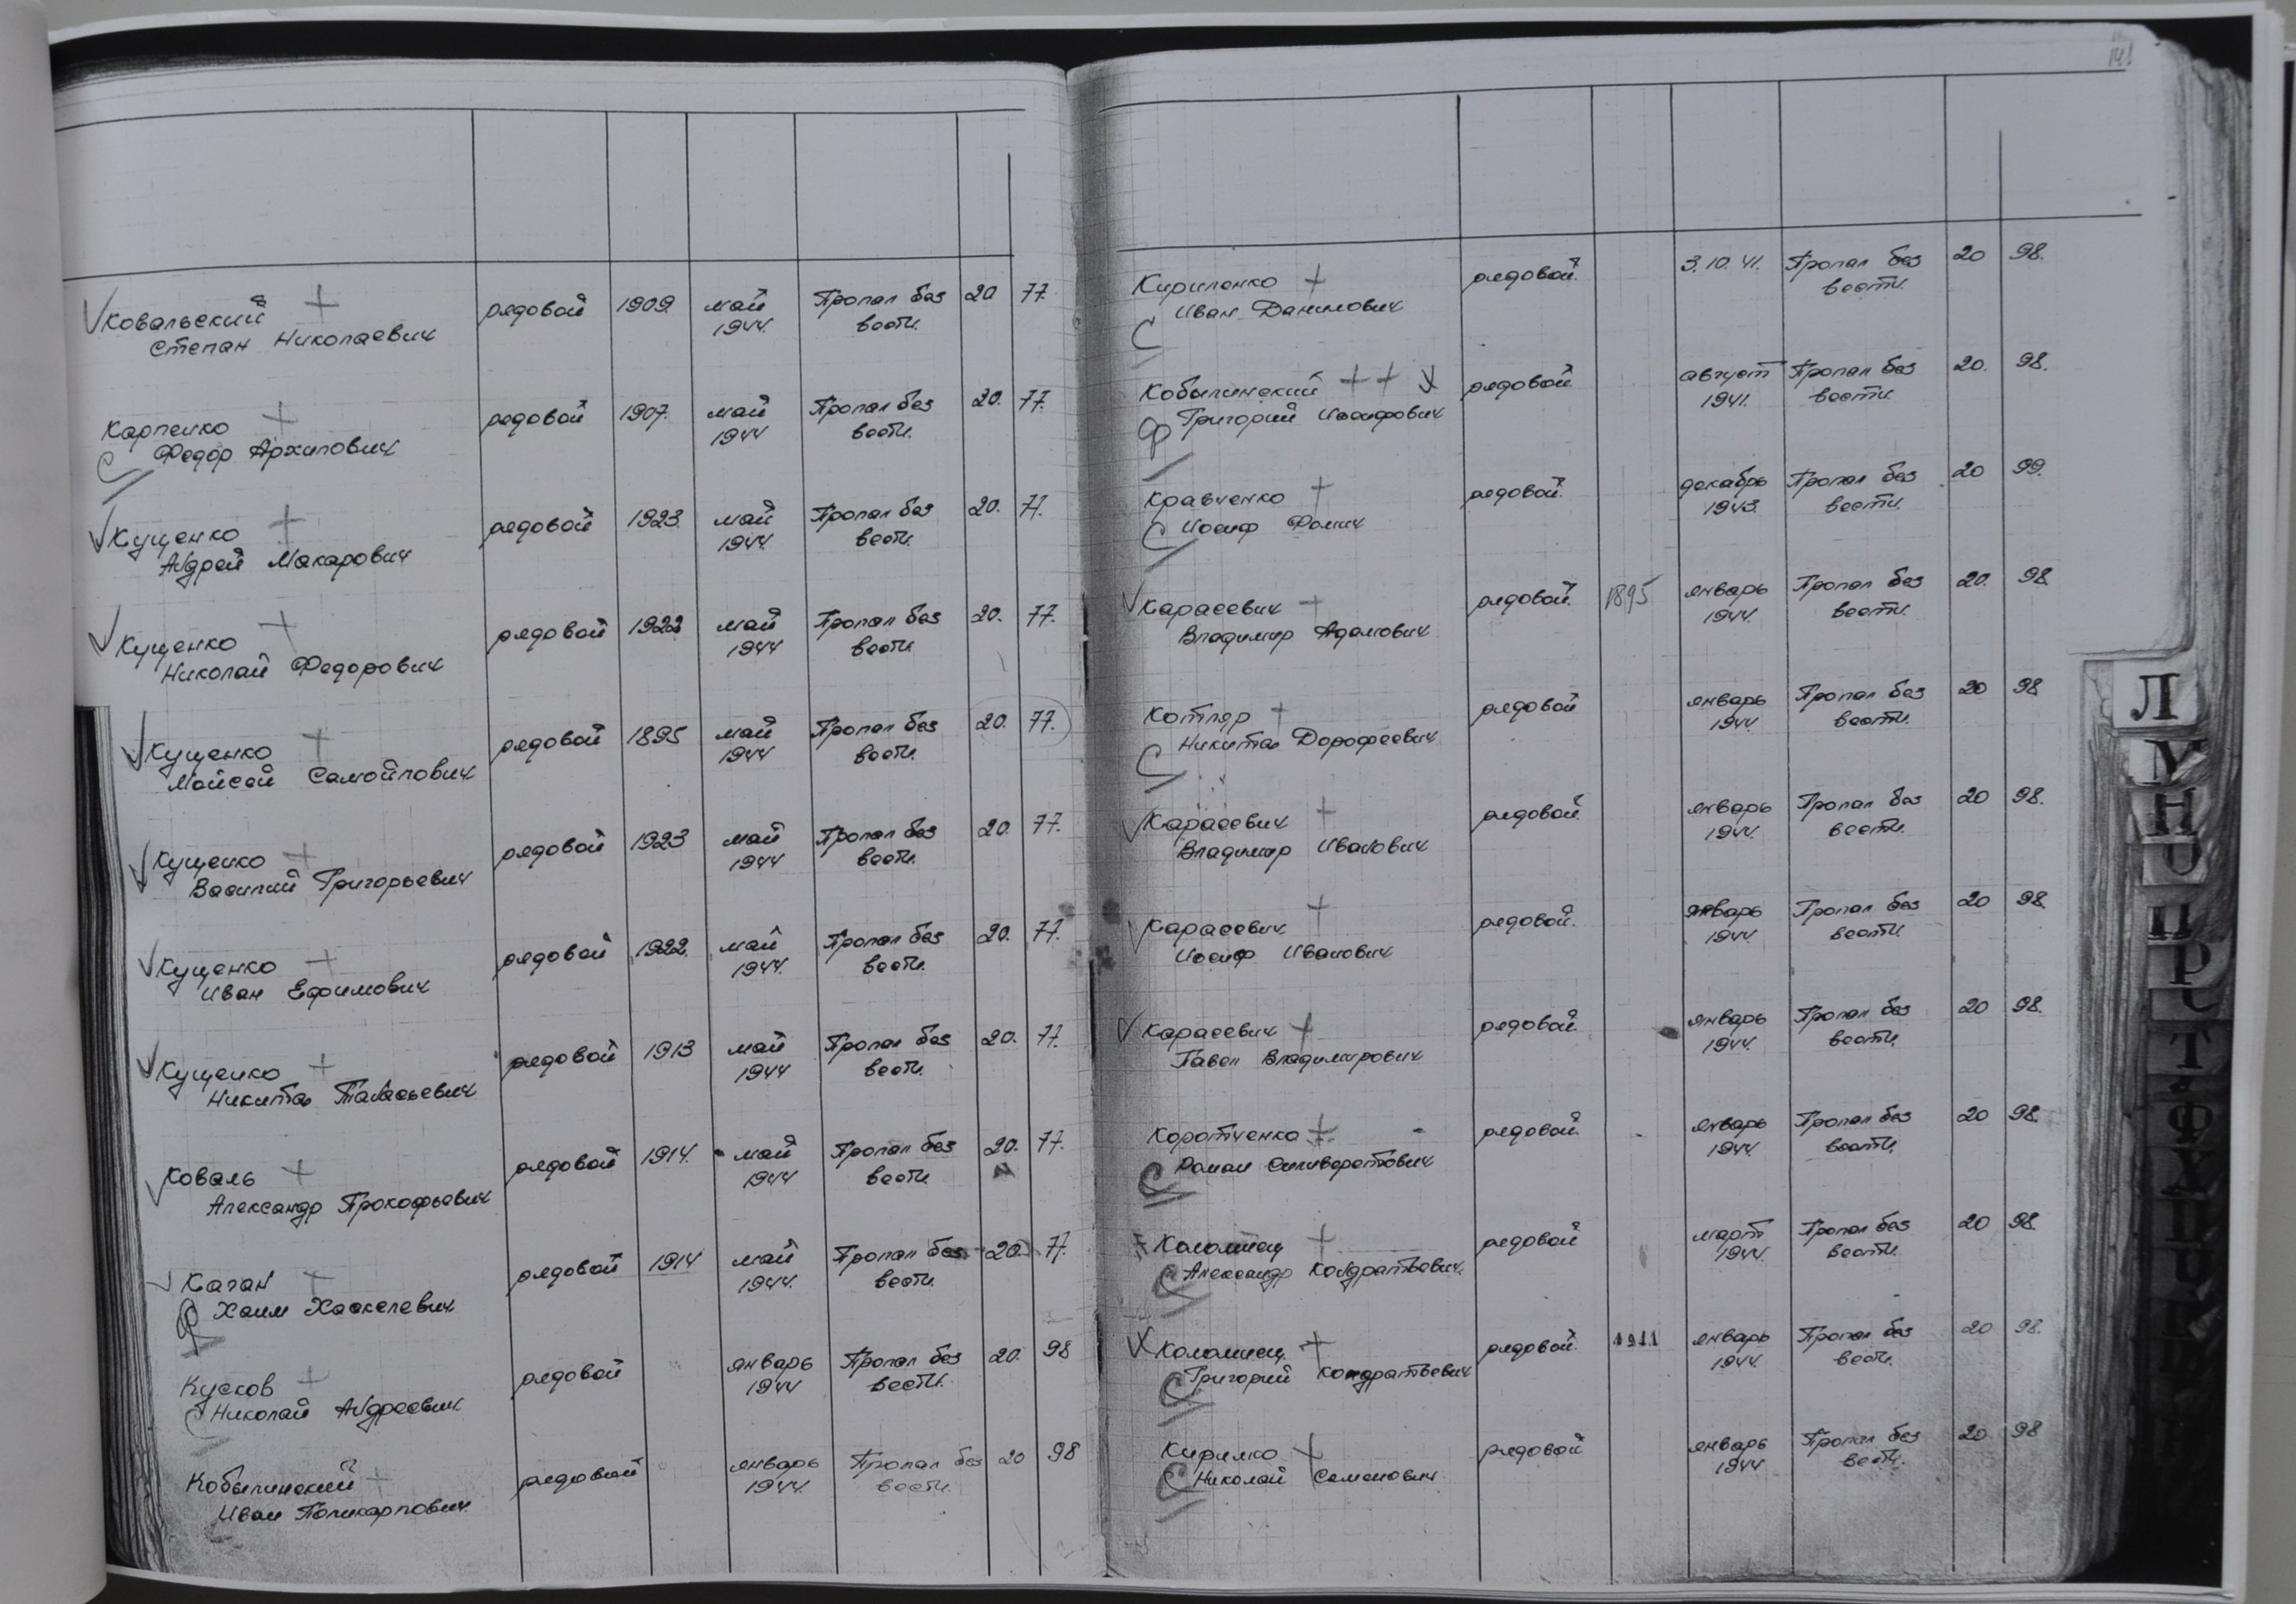 Ковальский рядовой 1909. май Пропал без 20 77.
Степан Николаевич 1944. вести.
Карпенко рядовой 1907. май Пропал без 20. 77.
С Федор Архипович 1944 вести.
Кущенко рядовой 1923. май Пропал без 20. 77.
Андрей Макарович 1944. вести.
Кущенко рядовой 1922 май Пропал без 20. 77.
Николай Федорович 1944 вести
Кущенко рядовой 1895 май Пропал без 20. 77.
Мойсей Самойлович 1944 вести.
Кущенко рядовой 1923 май Пропал без 20. 77.
Василий Григорьевич 1944 вести.
Кущенко рядовой 1922. май Пропал без 20. 77.
Иван Ефимович 1944. вести.
Кущенко рядовой 1913 май Пропал без 20. 77.
Никита 1944 вести.
Коваль рядовой 1914. май Пропал без 20. 77.
Александр Прокофьевич 1944 вести
Каган рядовой 1914 май Пропал без 20. 77.
Хаим Хаскелевич 1944. вести.
Кусков рядовой январь Пропал без 20. 98
С Николай Андреевич 1944 вести.
Кобылинский рядовой январь Пропал без 20 98
Иван Поликарпович 1944. вести.
141
Кириленко рядовой. 3.10.41. Пропал без 20 98.
Иван Данилович вести.
С
Кобылинский рядовой август Пропал без 20. 98.
Ф Григорий Иосифович 1941. вести.
Кравченко рядовой. декабрь Пропал без 20 99.
С Иосиф Фомич 1943. вести.
Карасевич рядовой. 1895 январь Пропал без 20. 98
Владимир Адамович 1944. вести.
Котляр рядовой январь Пропал без 20 98
Никита Дорофеевич 1944. вести.
С
Карасевич рядовой. январь Пропал без 20 98.
Владимир Иванович 1944. вести.
Карасевич рядовой. январь Пропал без 20 98.
Иосиф Иванович 1944. вести.
Карасевич рядовой. январь Пропал без 20 98.
Павел Владимирович 1944. вести.
Коротченко рядовой. январь Пропал без 20 98.
С Роман Сильверстович 1944 вести.
Коломиец рядовой март Пропал без 20 98.
С Александр Кондратьевич. 1944. вести.
Коломиец рядовой. 1911 январь Пропал без 20 98.
С Григорий Кондратьевич 1944. вести.
Кирилко рядовой январь Пропал без 20 98
С Николай Семенович 1944 вести.
Л
М
Н
О
П
Р
С
Т
Ф
Х